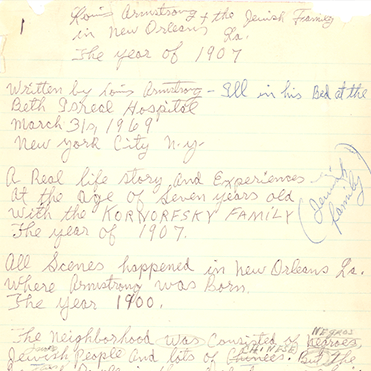 1
Louis Armstrong + the Jewish Family
in New Orleans La.
The year of 1907
Written by Louis Armstrong - Ill in his Bed at the
Beth Isreal Hospital
March 31, 1969
New York City N.Y.
A Real life story and Experiences
At the age of Seven years old
With the KORNORFSKY FAMILY
(Jewish
Family)
The year of 1907.
All Scenes happened in New Orleans La.
Where Armstrong was Born.
The year 1900.
NEGROS
The Neighborhood was Consisted of Negroes,
CHINESE
Jewish People and lots of But the